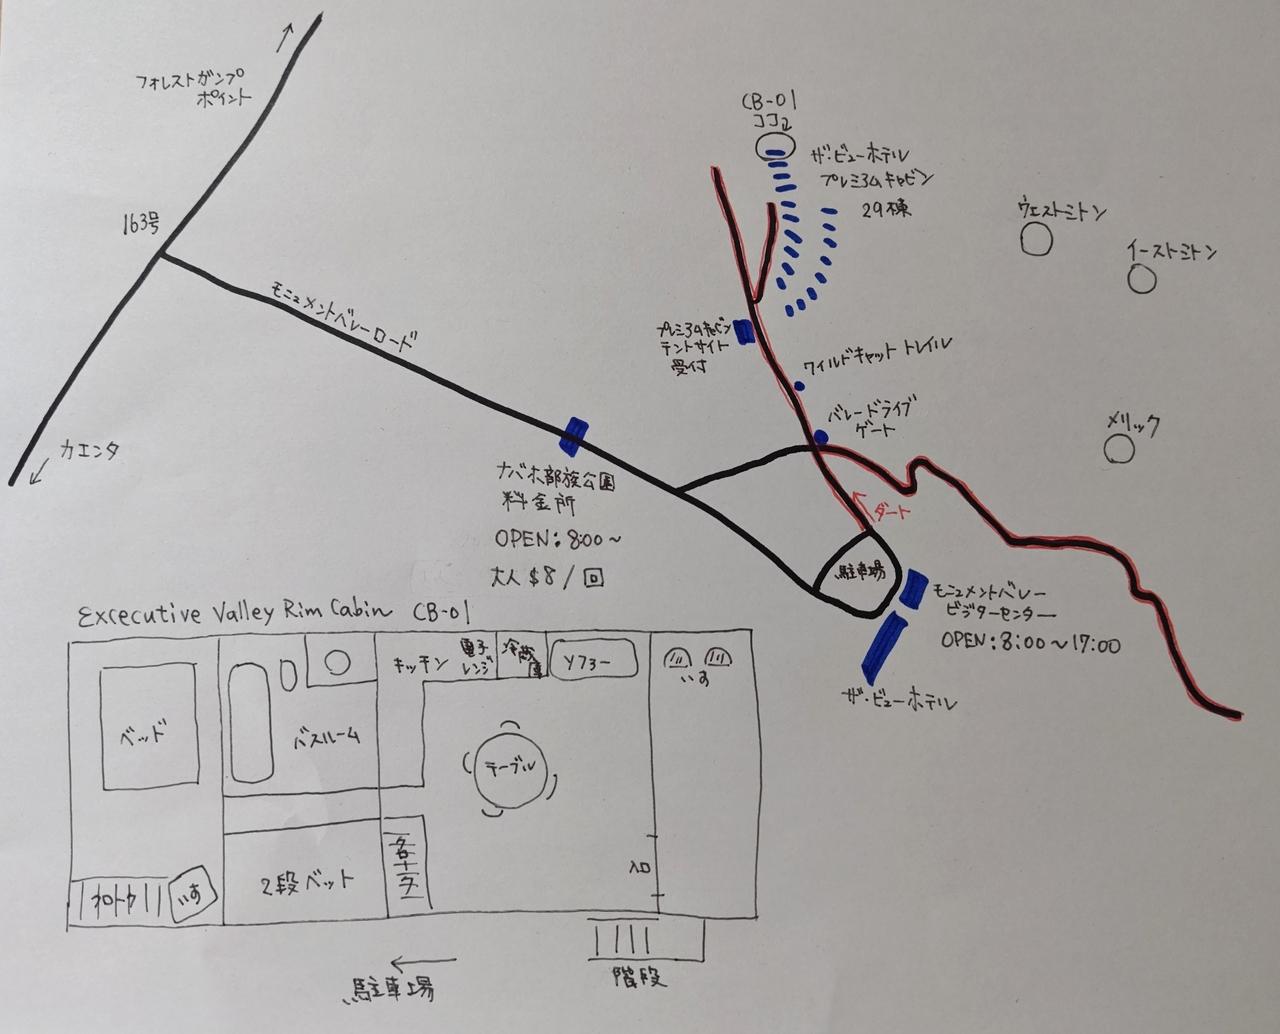 フォレストガンプ
ポイント
163号
カエンタ
モニュメントバレーロード
CB-01
ココ
ザ・ビューホテル
プレミアムキャビン
29棟
ウェストミトン
イーストミトン
メリック
プレミアムキャビン
テントサイト
受付
ワイルドキャットトレイル
バレードライブ
ゲート
ナバホ部族公園
料金所
OPEN:8:00~
大人 $8/回
ダート
駐車場
モニュメントバレー
ビジターセンター
OPEN:8:00~17:00
ザ・ビューホテル
Excecutive Valley Rim Cabin CB-01
ベッド
バスルーム
キッチン
電子
レンジ
冷蔵
庫
ソファー
いす
テーブル
2段ベット
入口
いす
階段
駐車場